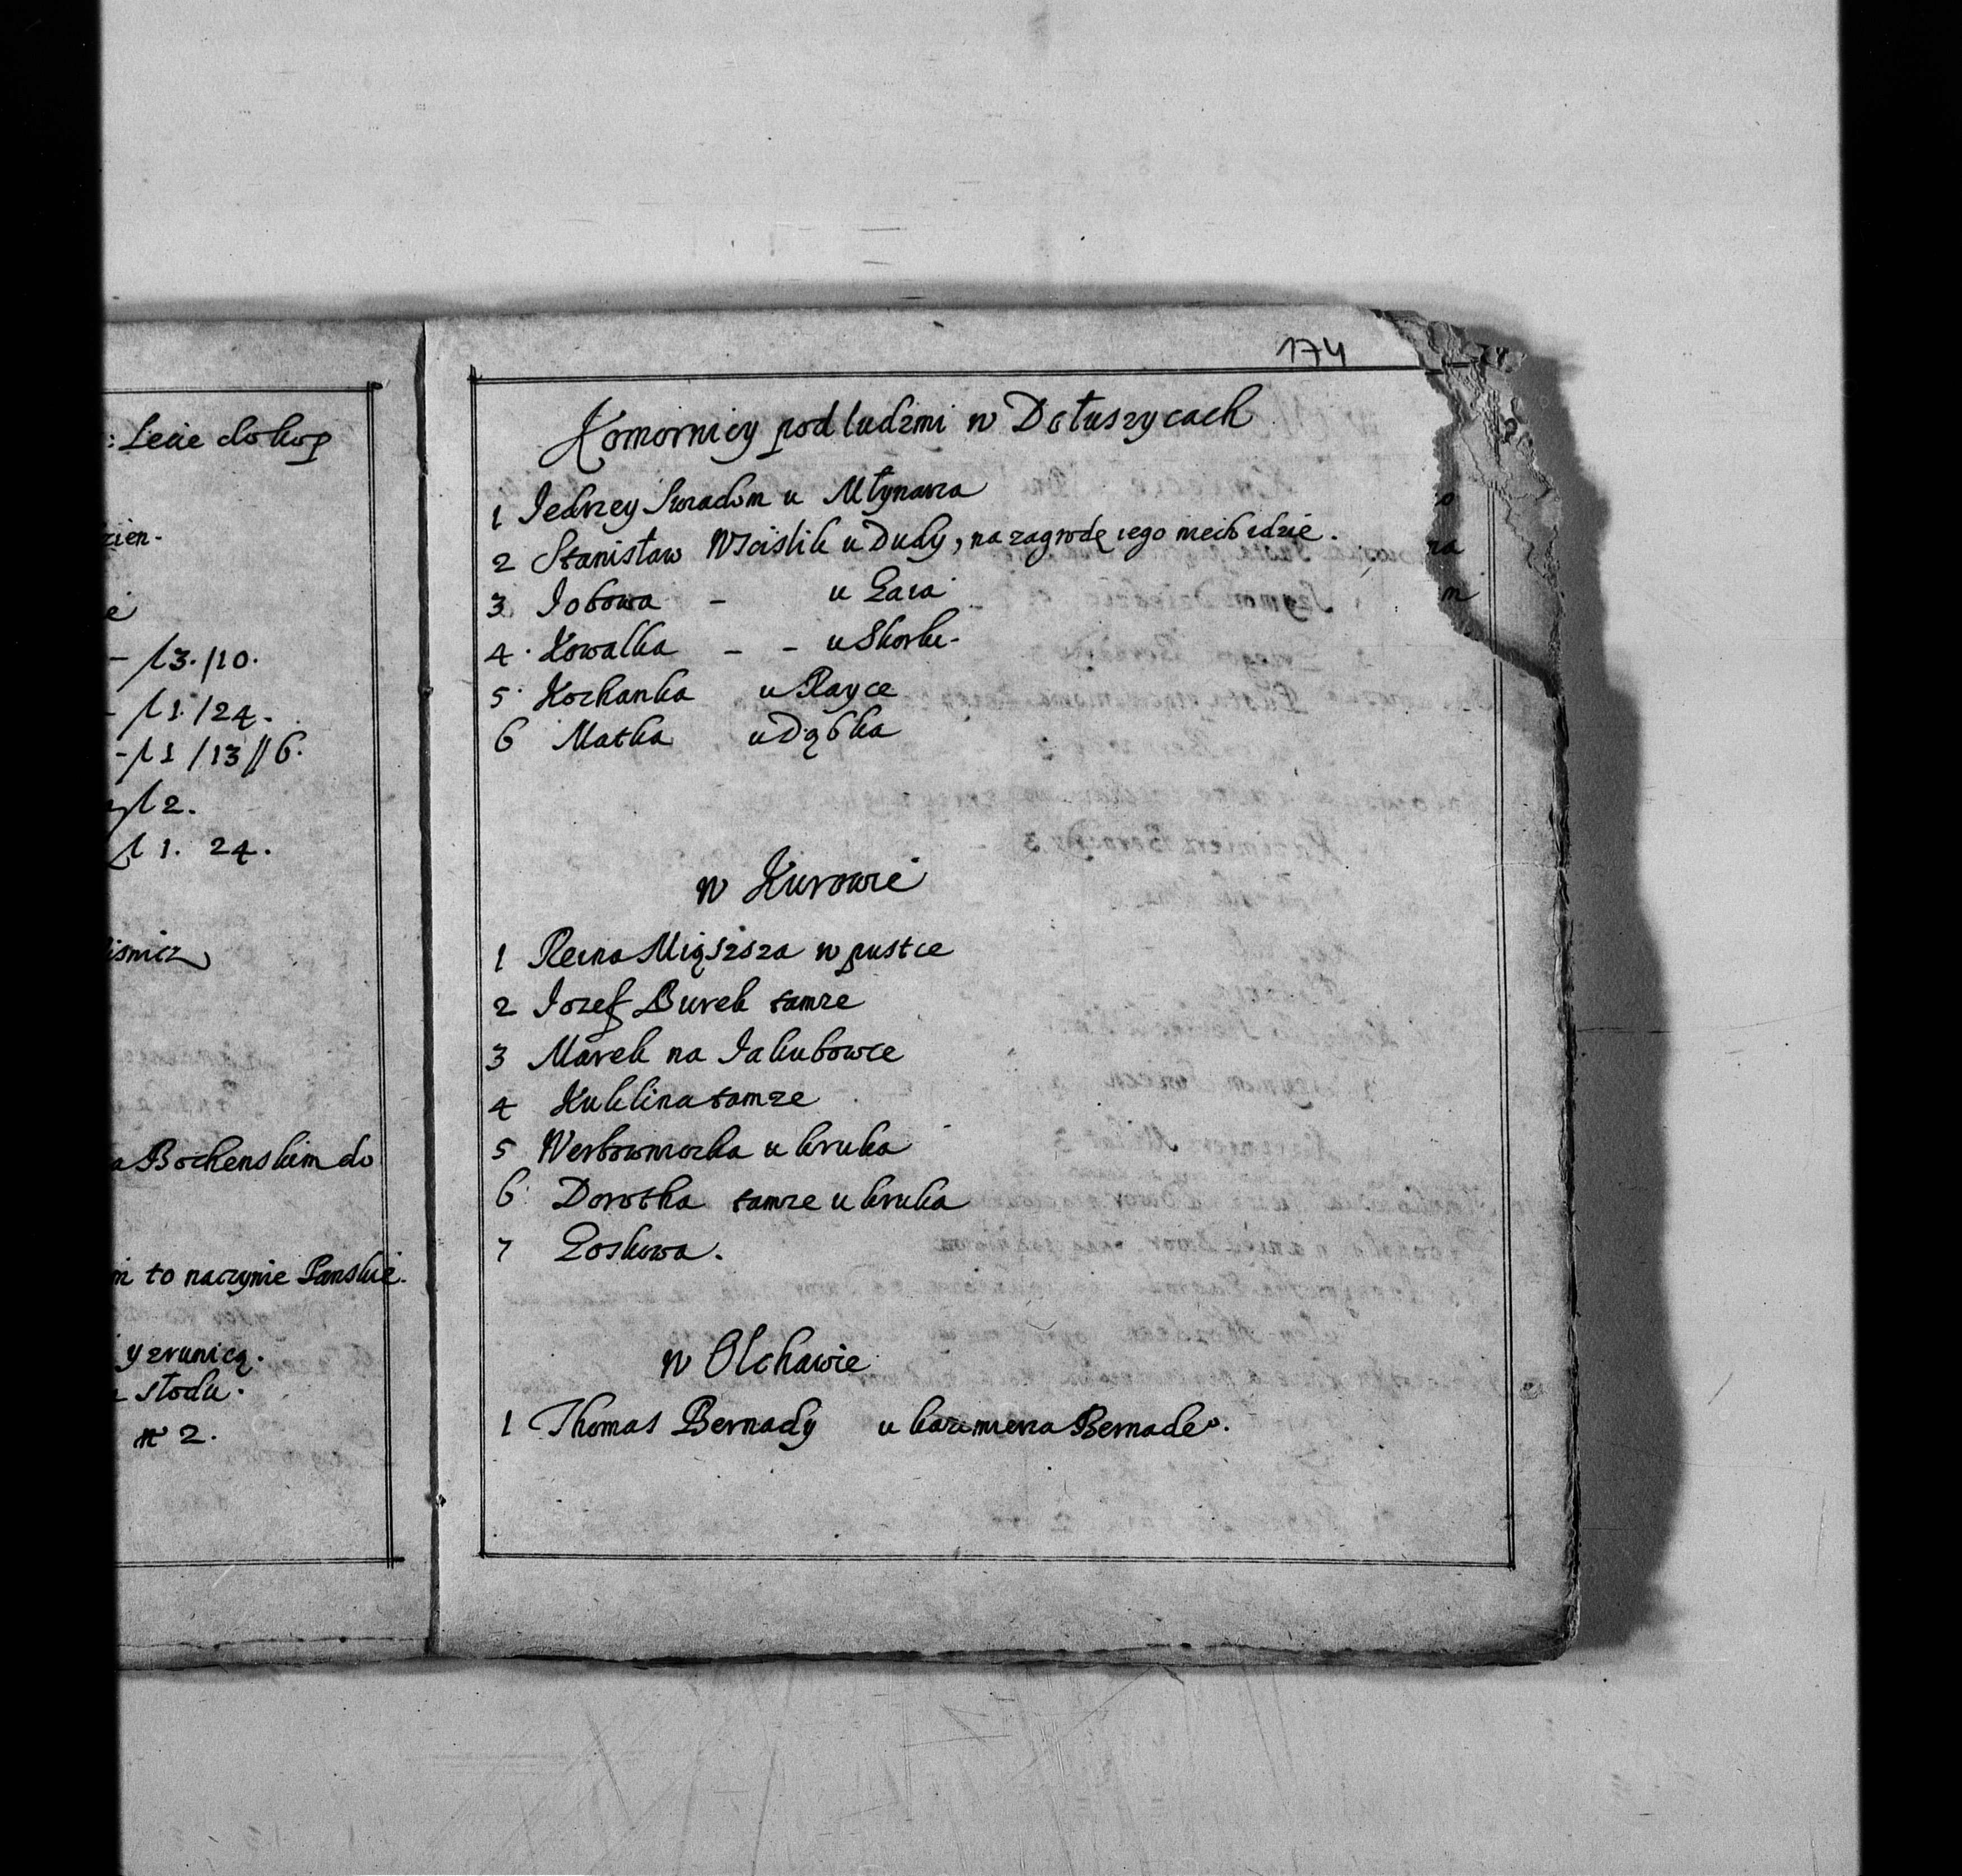 : Lecie do kop
zien.
ie
- /3./10.
- /1./24.
- /1 /13//6.
/2.
/1. 24.
ismicz
a Bochenskim do
m to naczynie Panskie.
y zrunicą.
stodu.
nr 2.
174
Komornicy pod ludzmi w Dołuszycach
1 Jedrzey Swiadom u Młynarza
2 Stanisław Wcislik u Dudy, na zagrodę iego niech idzie.
3 Jobowa - u Gaca
4. Kowalka - - u Skorki.
5. Kochanka u Rayce
6 Matka u Dąbka
w Kurowie
1 Reina Miąszsza w pustce
2 Jozef Burek tamze
3 Marek na Jakubowce
4 Kuklina tamze
5 Werbowniczka u kruka
6. Dorotka tamze u kruka
7 Loskowa.
w Olchawie
1 Thomas Bernady u kazimierza Bernade°.